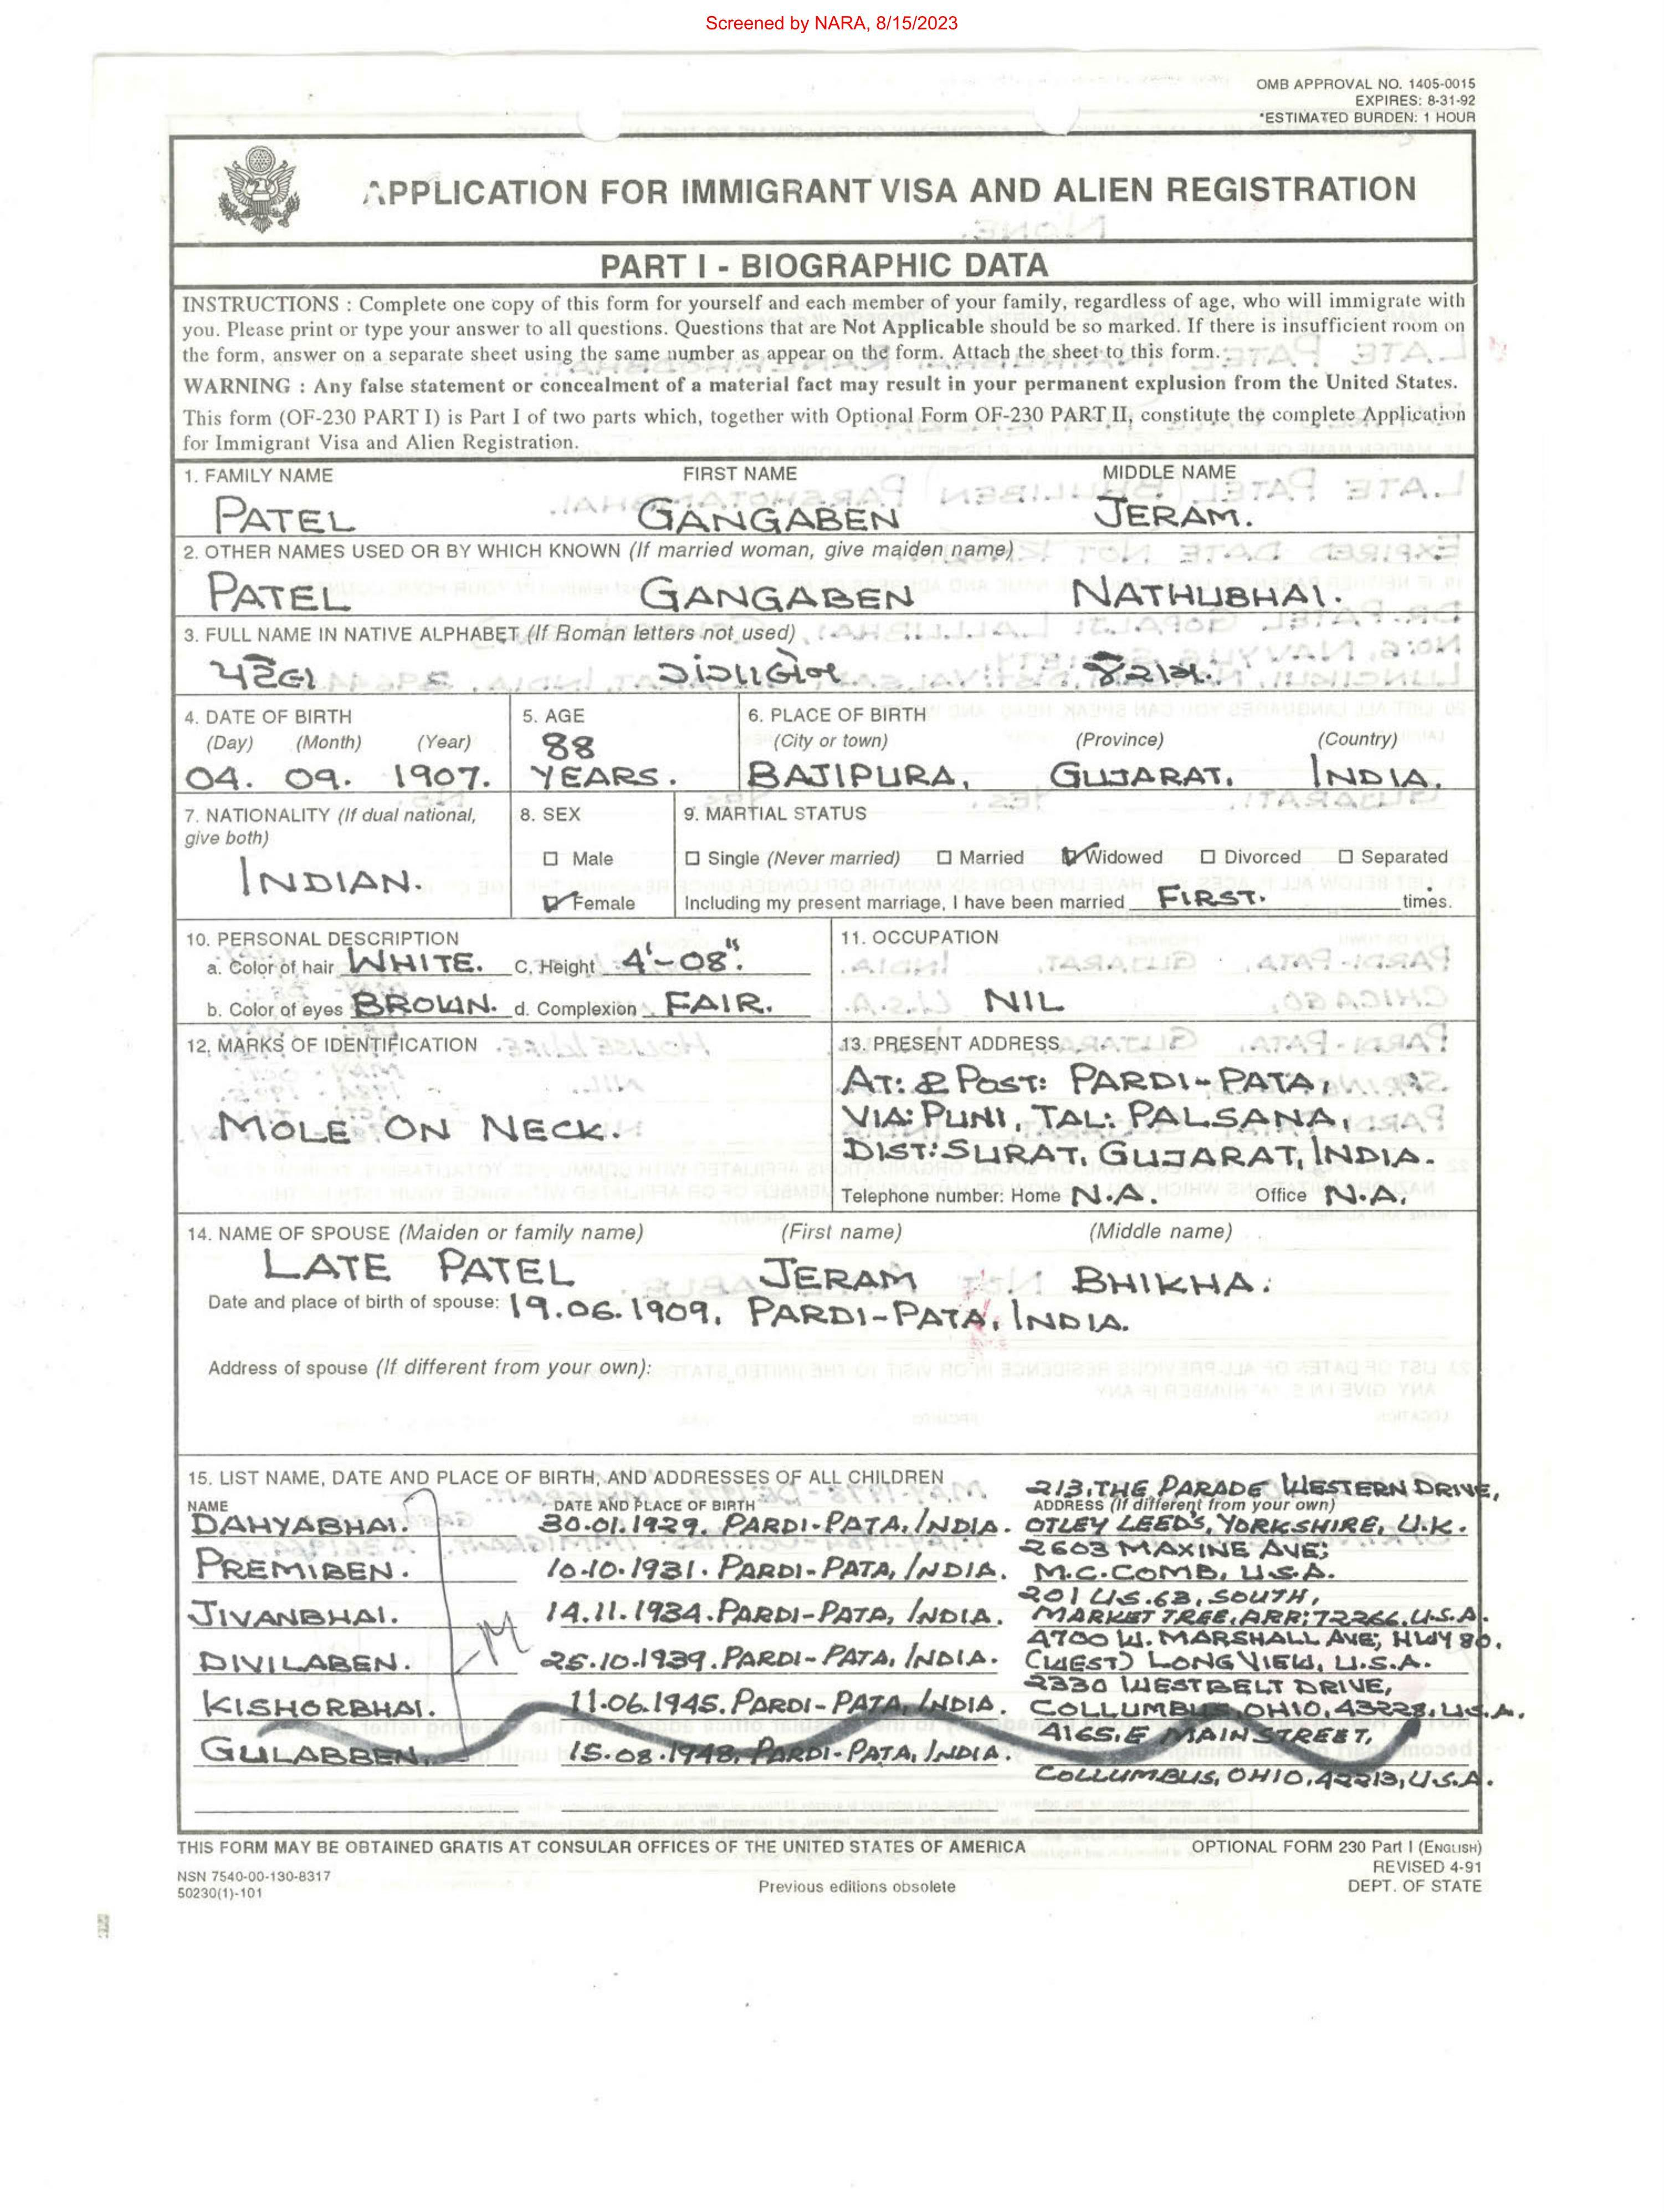 Screened by NARA, 8/15/2023
OMB APPROVAL NO. 1405-0015
EXPIRES: 8-31-92
*ESTIMATED BURDEN: 1 HOUR
APPLICATION FOR IMMIGRANT VISA AND ALIEN REGISTRATION
PART I - BIOGRAPHIC DATA
INSTRUCTIONS : Complete one copy of this form for yourself and each member of your family, regardless of age, who will immigrate with
you. Please print or type your answer to all questions. Questions that are Not Applicable should be so marked. If there is insufficient room on
the form, answer on a separate sheet using the same number as appear on the form. Attach the sheet to this form.
WARNING : Any false statement or concealment of a material fact may result in your permanent explusion from the United States.
This form (OF-230 PART I) is Part I of two parts which, together with Optional Form OF-230 PART II, constitute the complete Application
for Immigrant Visa and Alien Registration.
1. FAMILY NAME FIRST NAME MIDDLE NAME
PATEL GANGABEN JERAM.
2. OTHER NAMES USED OR BY WHICH KNOWN (If married woman, give maiden name)
PATEL GANGABEN NATHUBHAI.
3. FULL NAME IN NATIVE ALPHABET (If Roman letters not used)
પટેલ ગંગાબેન જેરામ.
4. DATE OF BIRTH 5. AGE 6. PLACE OF BIRTH
(Day) (Month) (Year) 88 (City or town) (Province) (Country)
04. 09. 1907. YEARS. BAJIPURA, GUJARAT, INDIA.
7. NATIONALITY (If dual national, 8. SEX 9. MARTIAL STATUS
give both)
☐ Male ☐ Single (Never married) ☐ Married ☑ Widowed ☐ Divorced ☐ Separated
INDIAN.
☑ Female Including my present marriage, I have been married FIRST. times.
10. PERSONAL DESCRIPTION 11. OCCUPATION
a. Color of hair WHITE. C. Height 4'-08".
b. Color of eyes BROWN. d. Complexion FAIR. NIL
12. MARKS OF IDENTIFICATION 13. PRESENT ADDRESS
AT: & POST: PARDI-PATA,
MOLE ON NECK. VIA: PUNI, TAL: PALSANA,
DIST: SURAT, GUJARAT, INDIA.
Telephone number: Home N.A. Office N.A.
14. NAME OF SPOUSE (Maiden or family name) (First name) (Middle name)
LATE PATEL JERAM BHIKHA.
Date and place of birth of spouse: 19.06.1909, PARDI-PATA, INDIA.
Address of spouse (If different from your own):
15. LIST NAME, DATE AND PLACE OF BIRTH, AND ADDRESSES OF ALL CHILDREN 213, THE PARADE WESTERN DRIVE,
NAME DATE AND PLACE OF BIRTH ADDRESS (If different from your own)
DAHYABHAI. 30.01.1929. PARDI-PATA, INDIA. OTLEY LEEDS, YORKSHIRE, U.K.
2603 MAXINE AVE;
PREMIBEN. 10.10.1931. PARDI-PATA, INDIA. M.C.COMB, U.S.A.
201 U.S.63, SOUTH,
JIVANBHAI. 14.11.1934. PARDI-PATA, INDIA. MARKET TREE, ARR; 72366, U.S.A.
4700 W. MARSHALL AVE; HWY 80,
DIVILABEN. 25.10.1939. PARDI-PATA, INDIA. (WEST) LONGVIEW, U.S.A.
2330 WESTBELT DRIVE,
KISHORBHAI. 11.06.1945. PARDI-PATA, INDIA. COLLUMBUS, OHIO, 43228, U.S.A.
4165, E MAIN STREET,
GULABBEN. 15.08.1948, PARDI-PATA, INDIA.
COLLUMBUS, OHIO, 42213, U.S.A.
THIS FORM MAY BE OBTAINED GRATIS AT CONSULAR OFFICES OF THE UNITED STATES OF AMERICA OPTIONAL FORM 230 Part I (ENGLISH)
NSN 7540-00-130-8317 REVISED 4-91
50230(1)-101 Previous editions obsolete DEPT. OF STATE